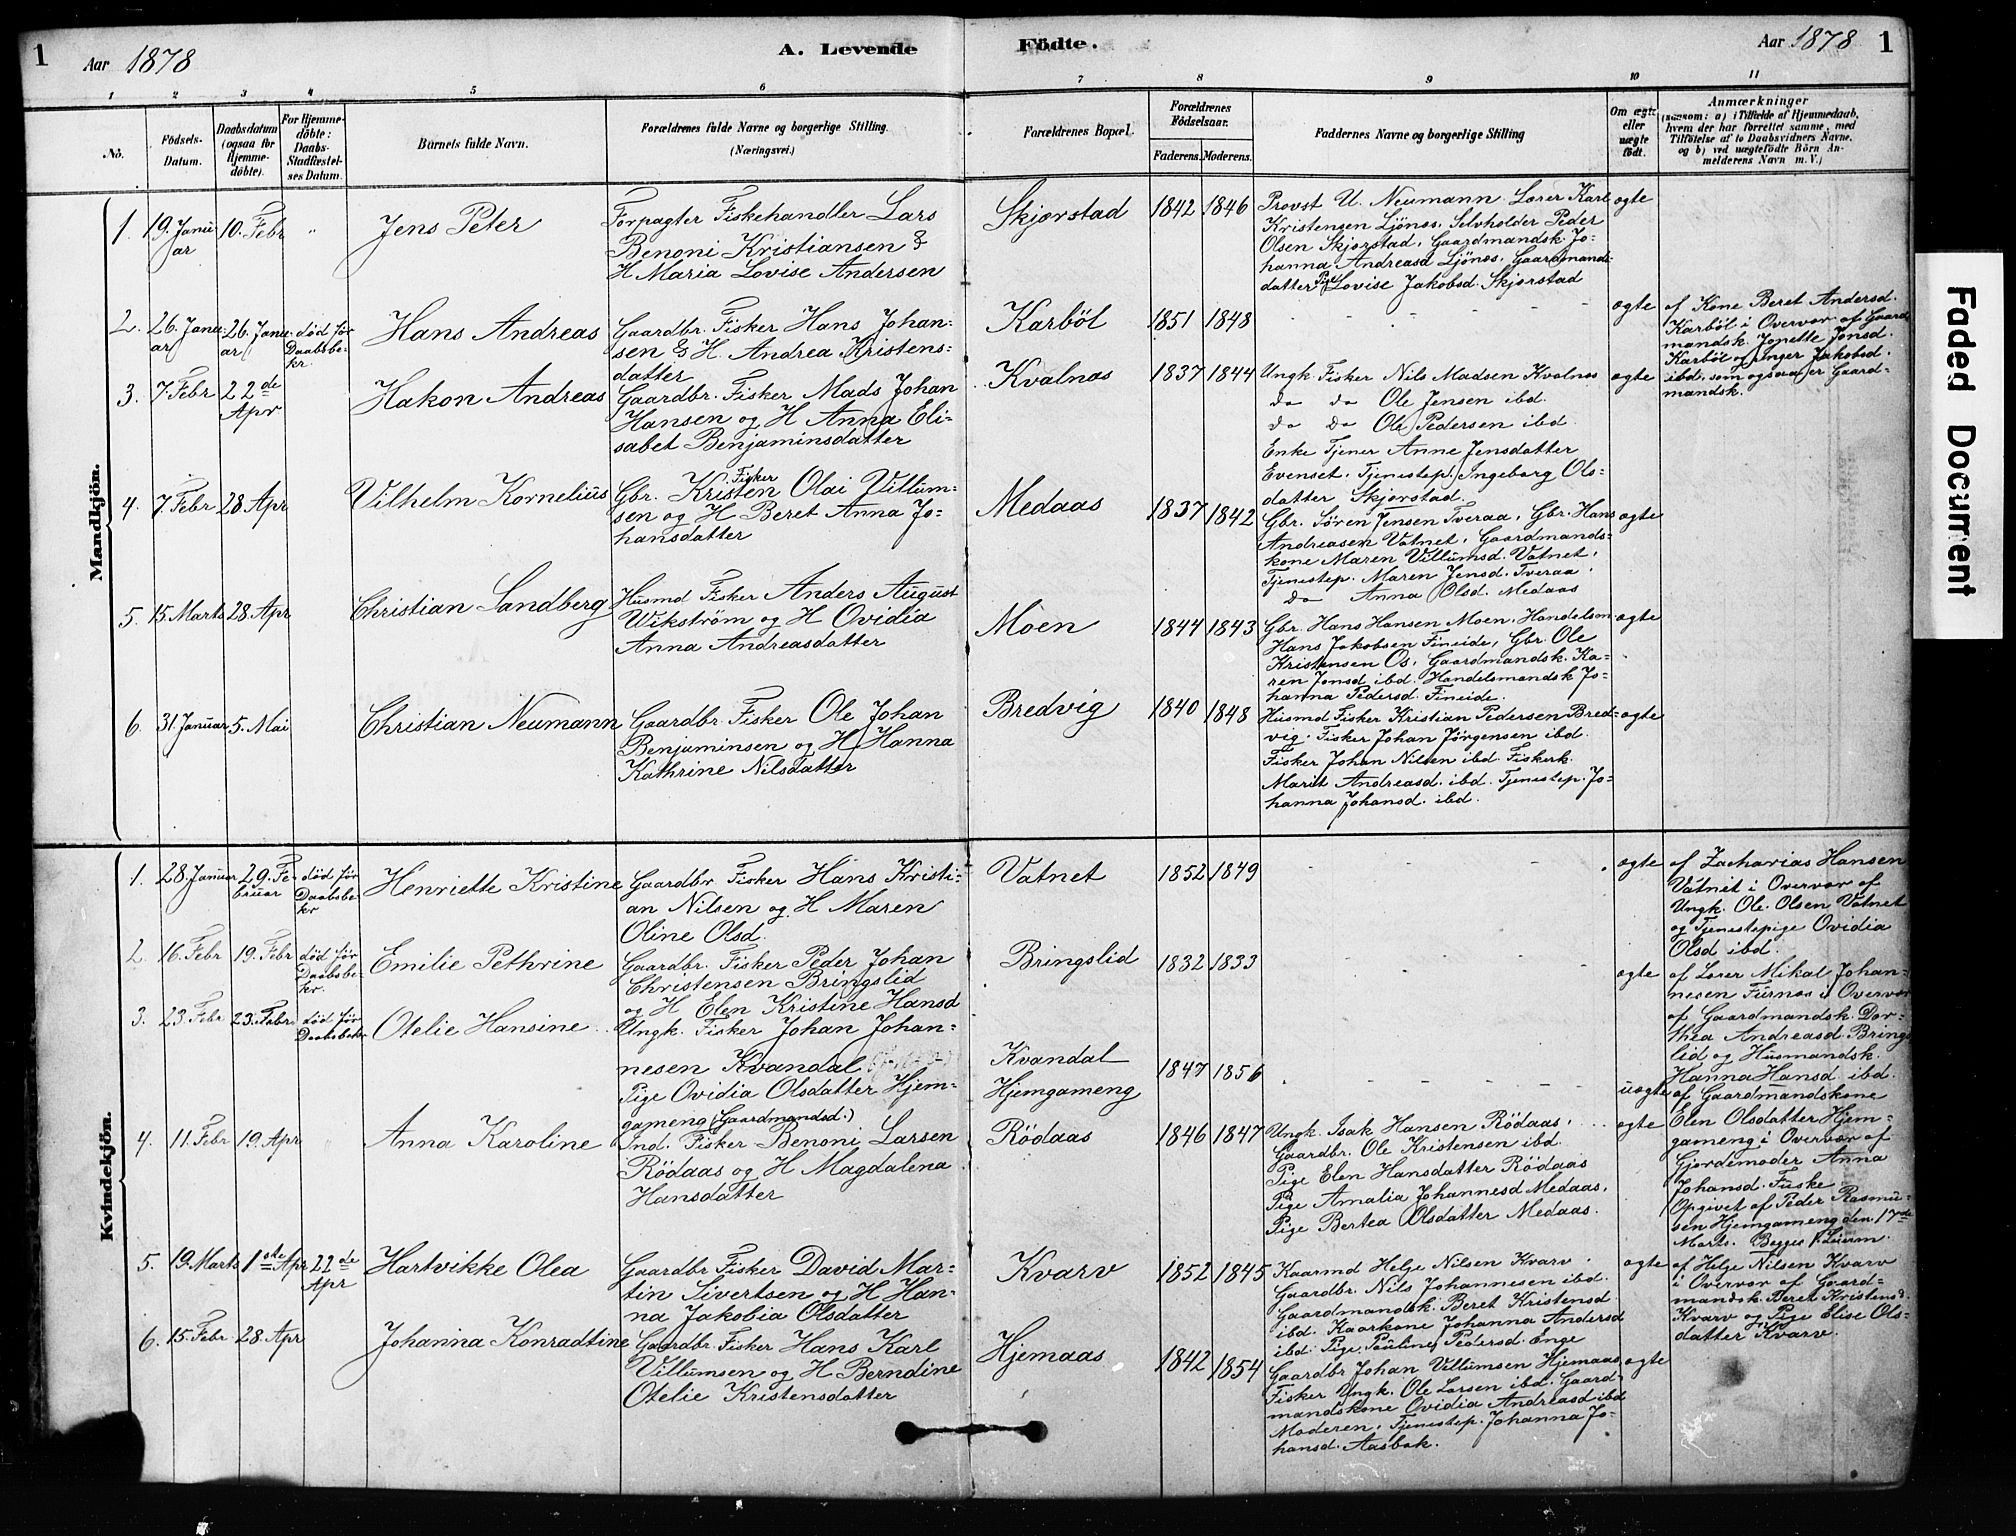 1
Aar 1878
A. Levende
Födte.
Aar 1878
1
1
2
3
4
5
6
7
8
9
10
11
No.
Födsels-
Datum.
Daabsdatum
(ogsaa for
Hjemme-
döbte).
For Hjemme-
döbte:
Daabs-
Stadfæstel-
ses Datum.
Barnets fulde Navn.
Forældrenes fulde Navne og borgerlige Stilling.
(Næringsvei.)
Forældrenes Bopæl.
Forældrenes
Födselsaar.
Faderens.
Moderens.
Faddernes Navne og borgerlige Stilling
Om ægte
eller
uægte
födt.
Anmærkninger
(saasom: a) i Tilfælde af Hjemmedaab,
hvem der har forrettet samme, med
Tilföielse af to Daabsvidners Navne,
og b) ved uægtefödte Börn An-
melderens Navn m. V.)
Mandkjön.
1.
19. Janu
ar
10. Febr
"
Jens Peter
Forpagter Fiskehandler Lars
Benoni Kristiansen &
H. Maria Lovise Andersen
Skjærstad
1842
1846
Provst U. Neumann. Lærer Karl
Kristensen Ljönes. Selvholder Peder
Olsen Skjærstad. Gaardmandsk. Jo-
hanna Andreasd Ljönes. Gaardmands-
datter Pige Lovise Jakobsd. Skjærstad
ægte
2.
26. Janu-
ar
26. Janu-
ar
död för
Daabsbe-
kr.
Hans Andreas
Gaardbr. Fisker Hans Johan-
sen & H. Andrea Kristens-
datter
Karböl
1851
1848
ægte
af Kone Beret Andersd.
Karböl i Overvær af Gaard-
mandsk. Jonette Jonsd.
Karböl og Inger Jakobsd.
ibd. som ogsaa er Gaard-
mandsk.
3.
7. Febr
22de
Apr
Hakon Andreas
Gaardbr. Fisker Mads Johan
Hansen og H. Anna Eli-
sabet Benjaminsdatter
Kvalnæs
1837
1844
Ungk. Fisker Nils Madsen Kvalnæs
do do Ole Jensen ibd.
do do Ole Pedersen ibd.
Enke Tjener Anne Jensdatter
Evenset. Tjenestep. Ingeborg Ols-
datter Skjærstad.
ægte
4.
7. Febr
28. Apr
Vilhelm Kornelius
Gbr. Fisker Kristen Olai Villum-
sen og H. Beret Anna Jo-
hansdatter
Medaas
1837
1842
Gbr. Sören Jensen Tveraa. Gbr. Hans
Andreasen Vatnet. Gaardmands-
kone Maren Villumsd. Vatnet.
Tjenestep. Maren Jensd. Tveraa.
do Anna Olsd. Medaas
ægte
5.
15. Marts
28. Apr
Christian Sandberg
Husmd Fisker Anders August
Wikström og H Ovidia
Anna Andreasdatter
Moen
1844
1843
Gbr. Hans Hansen Moen. Handelsm
Hans Jakobsen Fineide, Gbr. Ole
Kristensen Os. Gaardmandsk. Ka-
ren Jonsd ibd. Handelsmandsk Jo-
hanna Pedersd. Fineide.
ægte
6.
31. Januar
5. Mai
Christian Neumann
Gaardbr. Fisker Ole Johan
Benjaminsen og H Hanna
Kathrine Nilsdatter
Bredvig
1840
1848
Husmd Fisker Kristian Pedersen Bred-
vig. Fisker Johan Jörgensen ibd.
Fisker Johan Nilsen ibd. Fiskerk.
Marit Andreasd. ibd. Tjenestep. Jo-
hanna Johansd. ibd.
ægte
Kvindekjön.
1.
28. Januar
29. Fe-
bruar
död för
Daabsbe-
kr
Henriette Kristine
Gaardbr. Fisker Hans Kristi-
an Nilsen og H Maren
Oline Olsd.
Vatnet
1852
1849
ægte
af Zacharias Hansen
Vatnet i Overvær af
Ungk. Ole Olsen Vatnet
og Tjenestepige Ovidia
Olsd ibd.
2.
16. Febr
19. Febr
död för
Daabsbe-
kr.
Emilie Pethrine
Gaardbr. Fisker Peder Johan
Christensen Bringslid
og H Elen Kristine Hansd
Bringslid
1832
1833
ægte
af Lærer Mikal Johan-
nesen Furnes i Overvær
af Gaardmandsk. Dor-
thea Andreasd. Brings-
lid og Husmandsk.
Hanna Hansd ibd.
3.
23 Febr
23. Febr
död för
Daabsbekr
Otelie Hansine
Ungk. Fisker Johan Johan-
nesen Kvandal
Pige Ovidia Olsdatter Hjem-
gameng (Gaardmandsd.)
Kvandal
Hjemgameng
1847
1856
uægte
af Gaardmandskone
Elen Olsdatter Hjem-
gameng i Overvær af
Gjordemoder Anna
Johansd. Fuske.
Opgivet af Peder Rasmu-
sen Hjemgameng den 17de
Marts. Begges 1. Leierm.
4.
11. Febr
19. Apr
Anna Karoline
Ind. Fisker Benoni Larsen
Rödaas og H Magdalena
Hansdatter
Rödaas
1846
1847
Ungk. Isak Hansen Rödaas.
Gaardbr. Ole Kristensen ibd.
Pige Elen Hansdatter Rödaas
Pige Amalia Johannesd Medaas.
Pige Bertea Olsdatter Medaas.
ægte
5.
19. Marts
1ste Apr
22de
Apr
Hartvikke Olea
Gaardbr Fisker David Mar-
tin Sivertsen og H Han-
na Jakobia Olsdatter
Kvarv
1852
1845
Kaarmd Helge Nilsen Kvarv.
Gaardbr. Nils Johannesen ibd.
Gaardmandsk. Beret Kristensd
ibd. Kaarkone Johanna Andersd
ibd. Pige Pauline Pedersd. Enge
ægte
af Helge Nilsen Kvarv
i Overvær af Gaard-
mandsk. Beret Kristensd.
Kvarv og Pige Elise Ols-
datter Kvarv.
6.
15. Febr
28. Apr
Johanna Konradtine
Gaardbr. Fisker Hans Karl
Villumsen og H Berndine
Otelie Kristensdatter
Hjemaas
1842
1854
Gaardbr Johan Villumsen Hjemaas
Fisker Ungk. Ole Larsen ibd. Gaard-
mandskone Ovidia Andreasd ibd
Moderen. Tjenestep. Johanna Jo-
hansd. Aasbak.
ægte
Faded Document